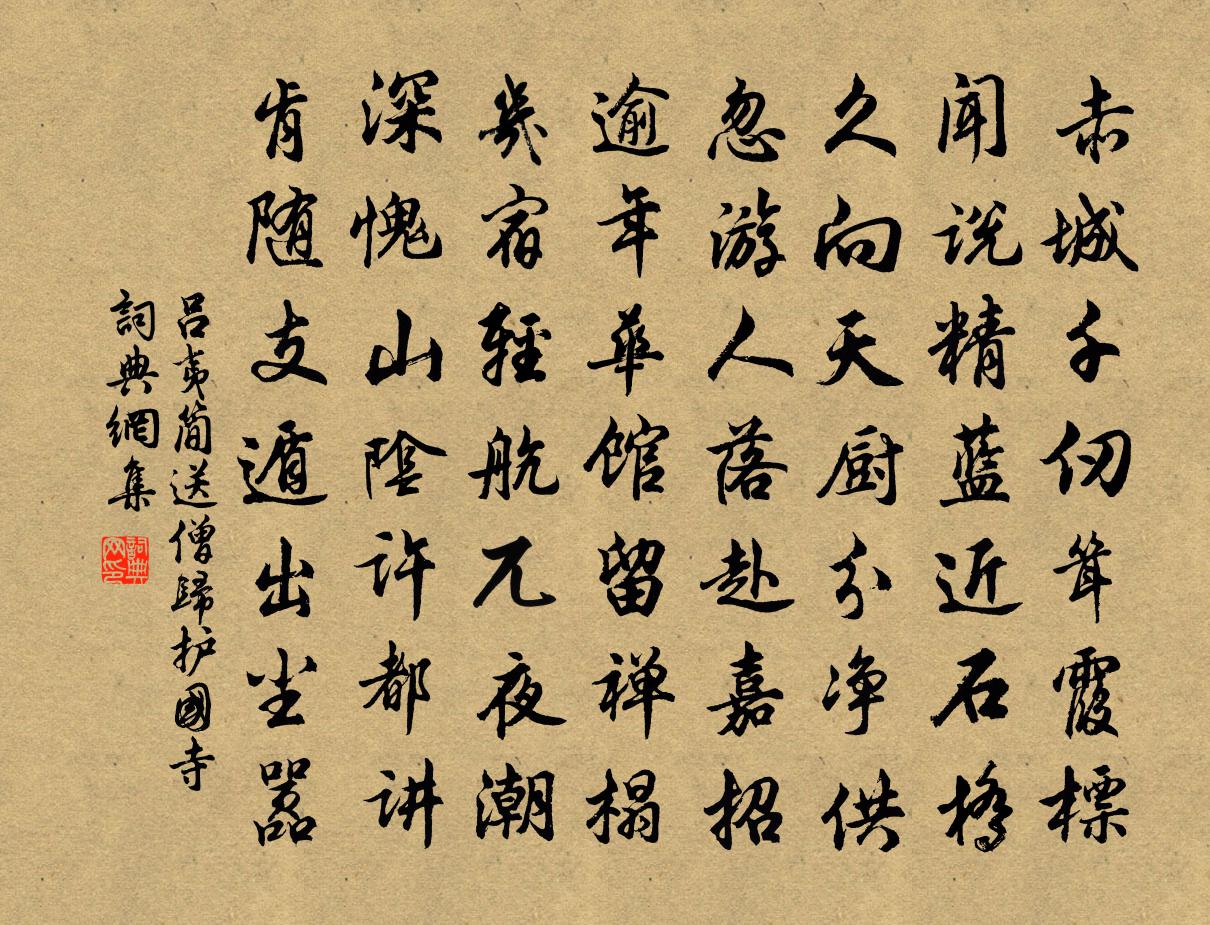 赤城千仞耸霞標
闻说精蓝近石橋
久向天厨分净供
忽游人落赴嘉招
逾年華馆留禅榻
幾宿輕航兀夜潮
深愧山陰许都讲
肯随支遁出尘嚣
吕夷简送僧歸护國寺
詞典網集
詞典网印